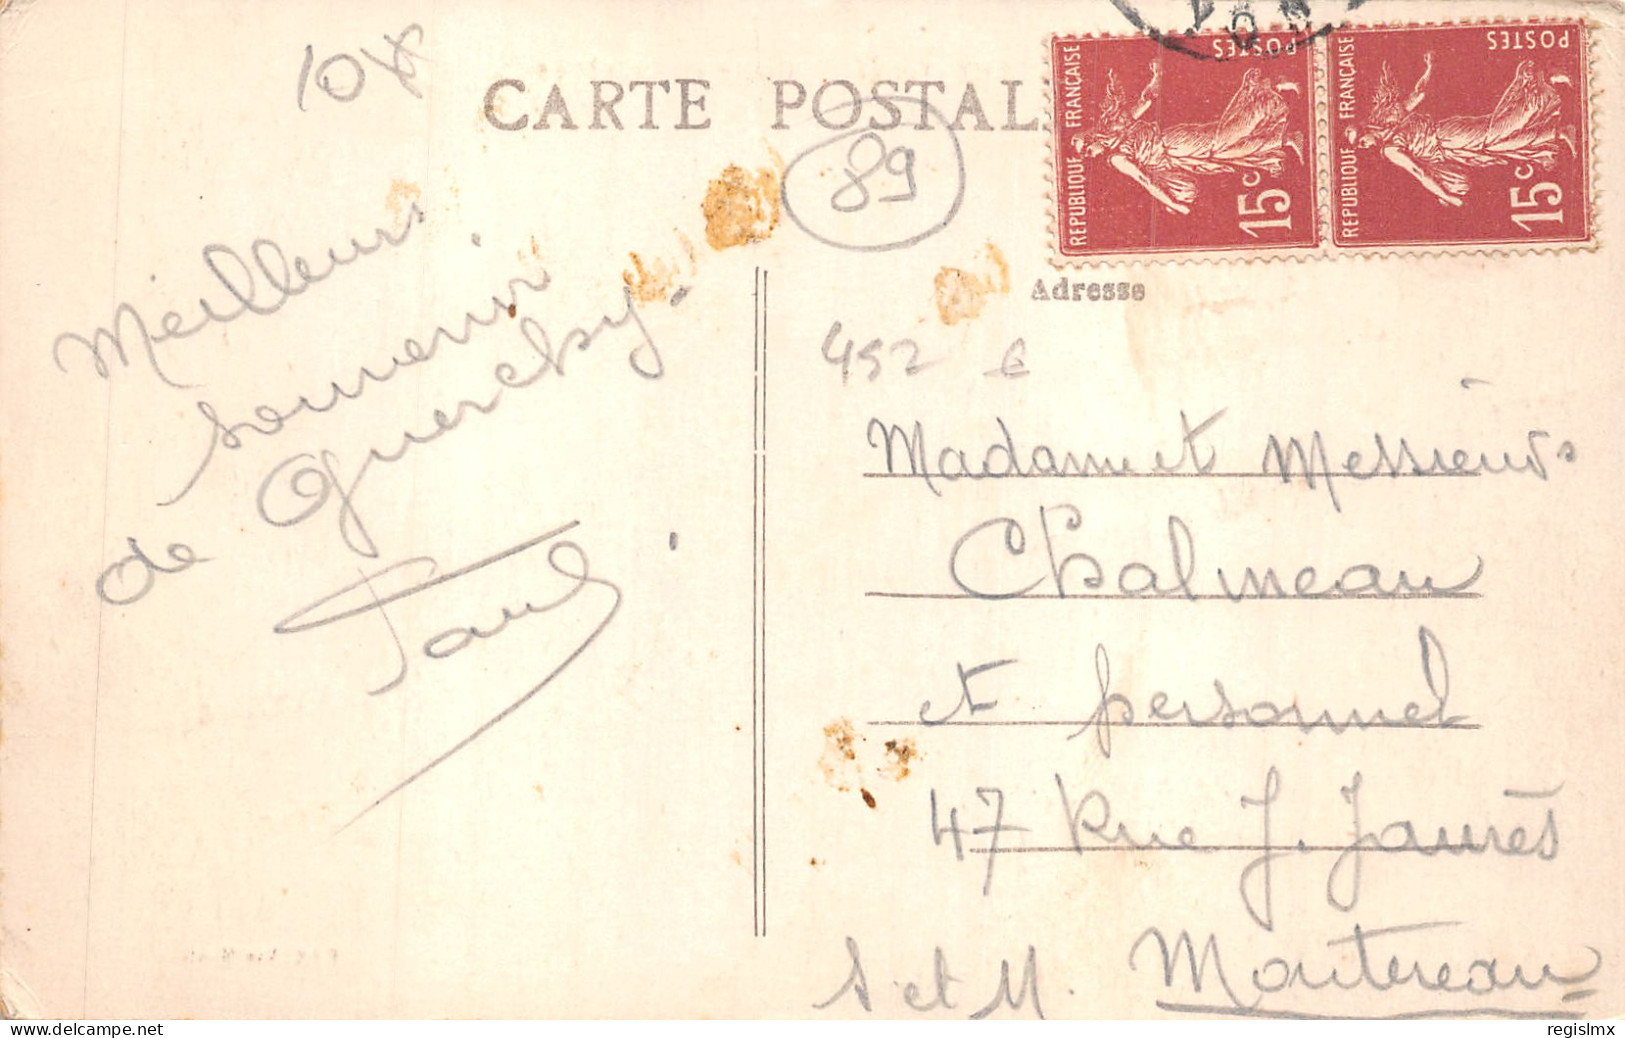 CARTE POSTAL
REPUBLIQUE FRANÇAISE
POSTES
15 c
REPUBLIQUE FRANÇAISE
POSTES
15 c
89
Adresse
Meilleurs
souvenir
de Guerchy.
Paul
452
Madame et Messieurs
Chalmeau
et personnel
47 Rue J. Jaurès
S et M. Montereau
delcampe.net
regislmx